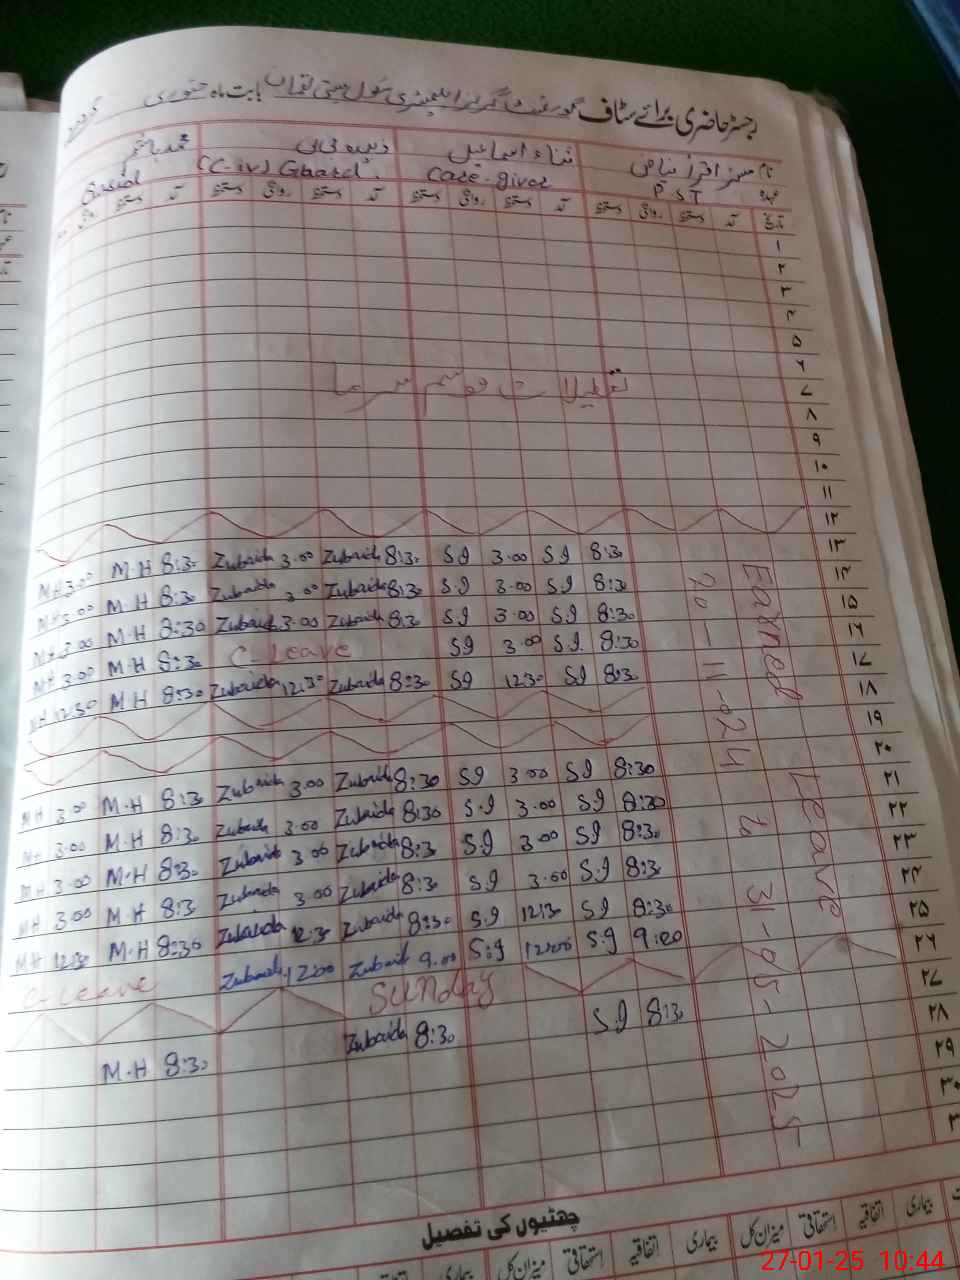 رجسٹر حاضری برائے سٹاف گورنمنٹ گرلز ایلیمنٹری سکول بستی لقمان بابت ماہ جنوری
نام مسز اقراء ریاض ثناء اسماعیل زبیدہ بی بی محمد ہاشم
عہدہ P S T Care-giver (C-iv) Guard.
تاریخ آمد دستخط روانگی دستخط آمد دستخط روانگی دستخط آمد دستخط روانگی دستخط آمد دستخط روانگی
۱
۲
۳
۴
۵
۶
تعطیلات موسم سرما ۷
۸
۹
۱۰
۱۱
۱۲
MH 3.00 M.H 8:30 Zubaida 3.00 Zubaida 8:30 S.I 3.00 S.I 8:30 ۱۳
MH 3.00 M.H 8:30 Zubaida 3.00 Zubaida 8:30 S.I 3.00 S.I 8:30 ۱۴
MH 3.00 M.H 8:30 Zubaida 3.00 Zubaida 8:30 S.I 3.00 S.I 8:30 ۱۵
MH 3.00 M.H 8:30 C-Leave SI 3.00 S.I 8:30 ۱۶
MH 12:30 M.H 8:30 Zubaida 12:30 Zubaida 8:30 SI 12:30 SI 8:30 ۱۷
۱۸
۱۹
MH 3.00 M.H 8:30 Zubaida 3.00 Zubaida 8:30 SI 3.00 SI 8:30 ۲۰
MH 3.00 M.H 8:30 Zubaida 3.00 Zubaida 8:30 S.I 3.00 SI 8:30 ۲۱
MH 3.00 M.H 8:30 Zubaida 3.00 Zubaida 8:30 S.I 3.00 SI 8:30 ۲۲
MH 3.00 M.H 8:30 Zubaida 3.00 Zubaida 8:30 S.I 3.00 SI 8:30 ۲۳
MH 12:30 M.H 8:30 Zubaida 12:30 Zubaida 8:30 S.I 12:30 SI 8:30 ۲۴
C-Leave Zubaida 12:00 Zubaida 9.00 S.I 12:00 S.I 9:00 ۲۵
Sunday ۲۶
M.H 8:30 Zubaida 8:30 S.I 8:30 ۲۷
۲۸
۲۹
۳۰
Earned Leave
20-11-024 to 31-05-2025
چھٹیوں کی تفصیل
بیماری اتفاقیہ استحقاقی میزان کل بیماری اتفاقیہ استحقاقی میزان کل بیماری اتفاقیہ
27-01-25 10:44